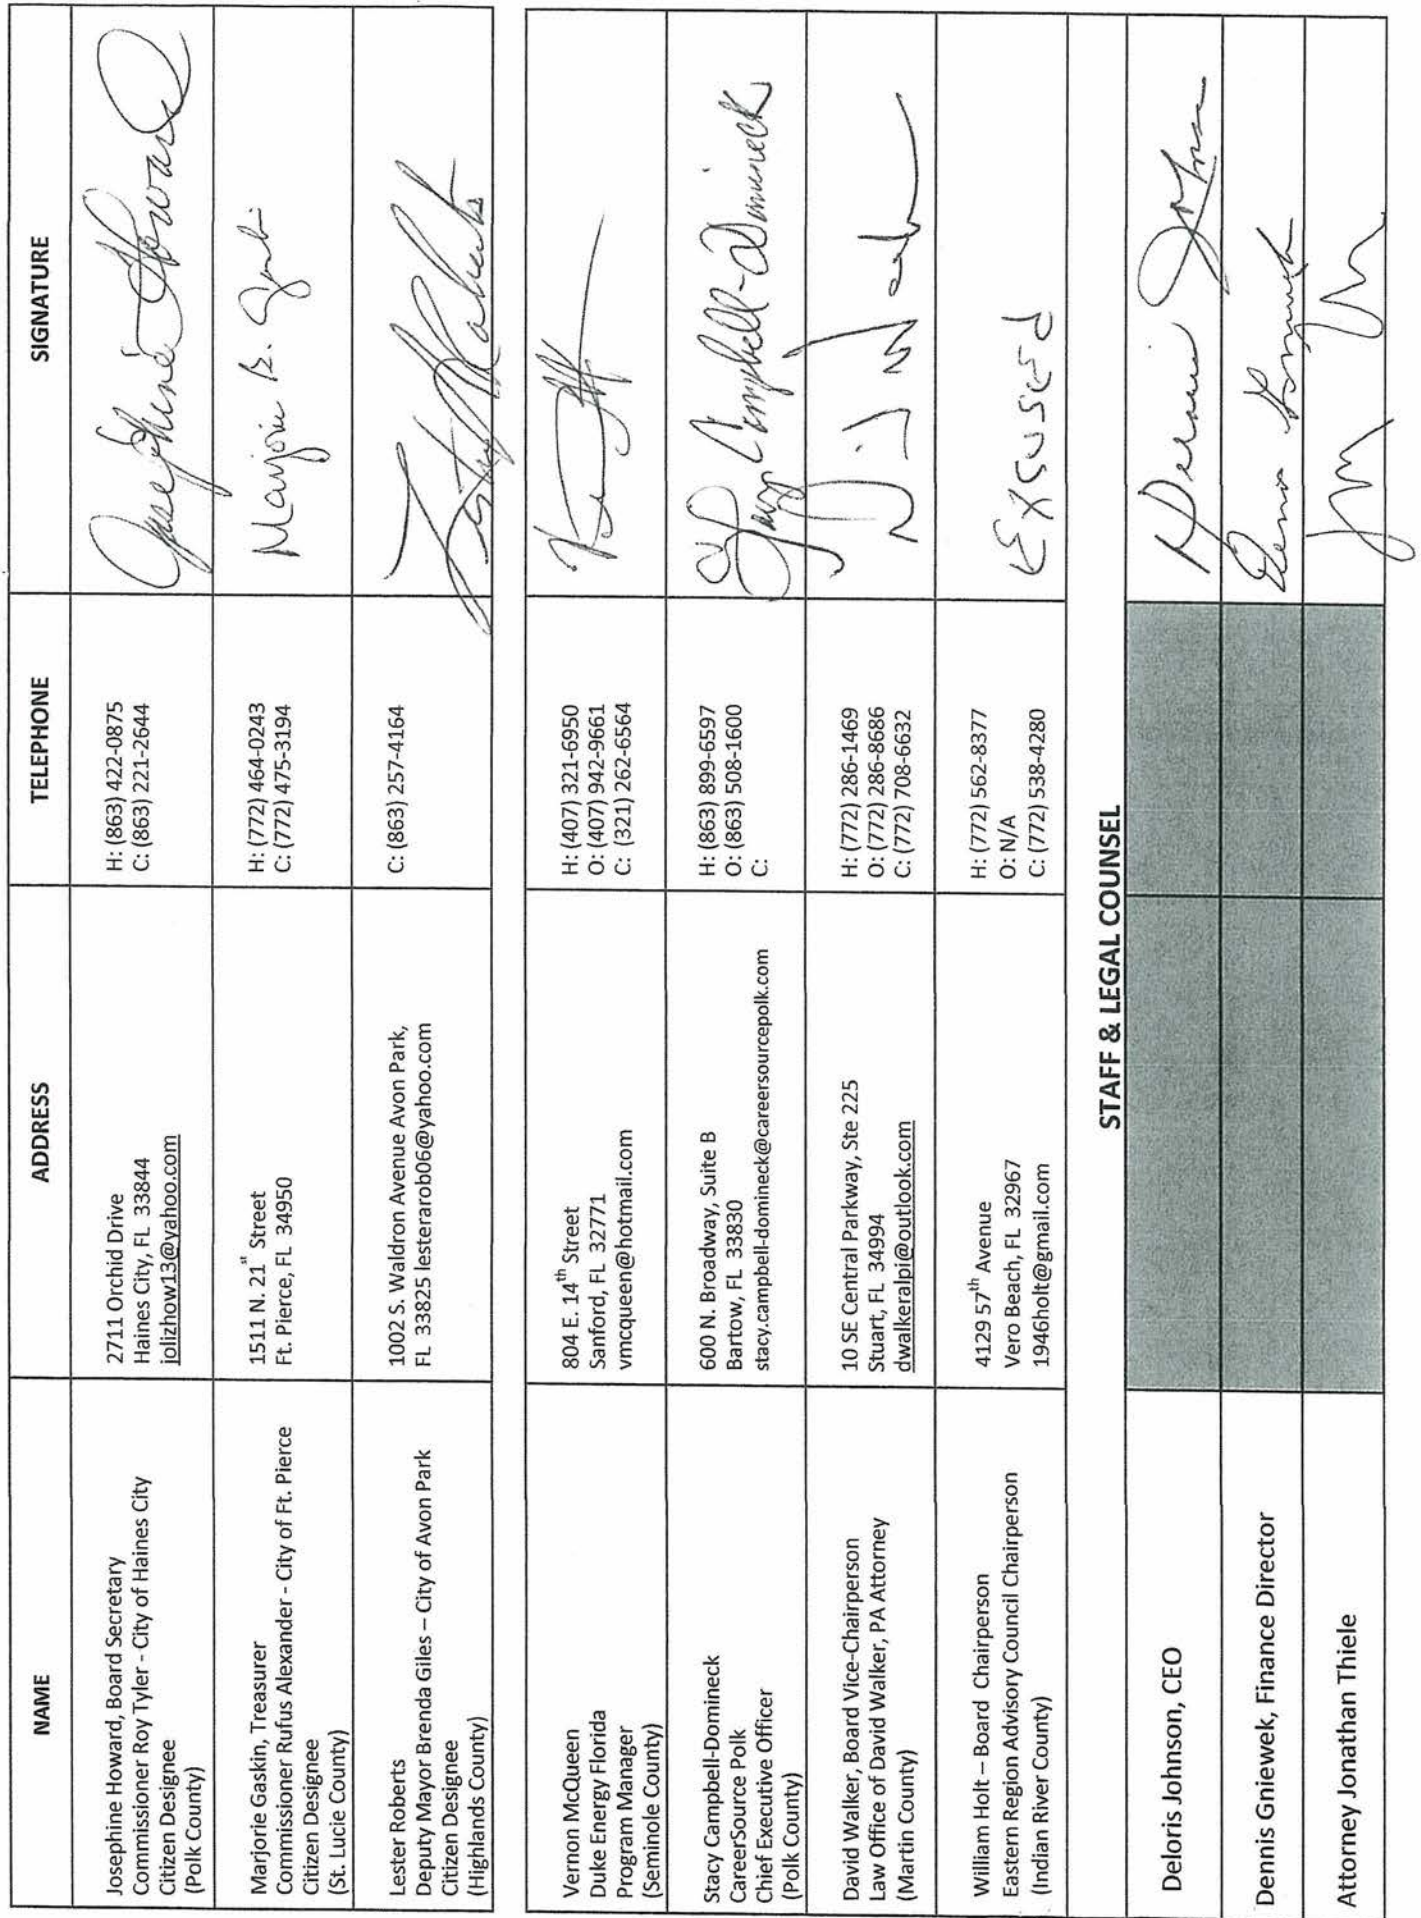 NAME
ADDRESS
TELEPHONE
SIGNATURE
Josephine Howard, Board Secretary
Commissioner Roy Tyler - City of Haines City
Citizen Designee
(Polk County)
2711 Orchid Drive
Haines City, FL 33844
jolizhow13@yahoo.com
H: (863) 422-0875
C: (863) 221-2644
Josephine Howard
Marjorie Gaskin, Treasurer
Commissioner Rufus Alexander - City of Ft. Pierce
Citizen Designee
(St. Lucie County)
1511 N. 21st Street
Ft. Pierce, FL 34950
H: (772) 464-0243
C: (772) 475-3194
Marjorie B. Gaskin
Lester Roberts
Deputy Mayor Brenda Giles – City of Avon Park
Citizen Designee
(Highlands County)
1002 S. Waldron Avenue Avon Park,
FL 33825 lesterarob06@yahoo.com
C: (863) 257-4164
Vernon McQueen
Duke Energy Florida
Program Manager
(Seminole County)
804 E. 14th Street
Sanford, FL 32771
vmcqueen@hotmail.com
H: (407) 321-6950
O: (407) 942-9661
C: (321) 262-6564
Stacy Campbell-Domineck
CareerSource Polk
Chief Executive Officer
(Polk County)
600 N. Broadway, Suite B
Bartow, FL 33830
stacy.campbell-domineck@careersourcepolk.com
H: (863) 899-6597
O: (863) 508-1600
C:
Stacy Campbell-Domineck
David Walker, Board Vice-Chairperson
Law Office of David Walker, PA Attorney
(Martin County)
10 SE Central Parkway, Ste 225
Stuart, FL 34994
dwalkeralpi@outlook.com
H: (772) 286-1469
O: (772) 286-8686
C: (772) 708-6632
William Holt – Board Chairperson
Eastern Region Advisory Council Chairperson
(Indian River County)
4129 57th Avenue
Vero Beach, FL 32967
1946holt@gmail.com
H: (772) 562-8377
O: N/A
C: (772) 538-4280
Exsused
STAFF & LEGAL COUNSEL
Deloris Johnson, CEO
Deloris Johnson
Dennis Gniewek, Finance Director
Dennis Gniewek
Attorney Jonathan Thiele